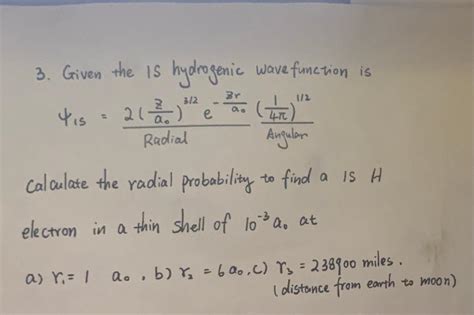 3. Given the 1S hydrogenic wavefunction is
ψ1s = 2(Z/a₀)^3/2 e^-Zr/a₀ (1/4π)^1/2
Radial Angular
Calculate the radial probability to find a 1S H
electron in a thin shell of 10⁻³ a₀ at
a) r₁ = 1 a₀, b) r₂ = 6a₀, c) r₃ = 238900 miles.
(distance from earth to moon)